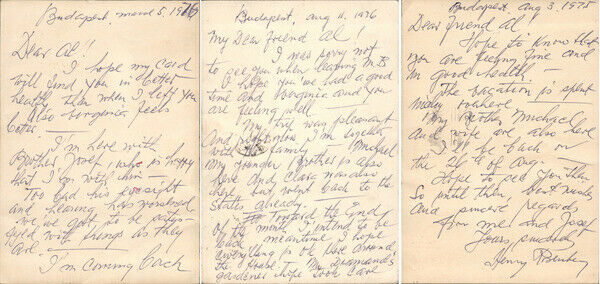 Budapest, march 5, 1976
Dear Al!
I hope my card
will find you in better
health then when I left you
Also Virginia feels
better —
I'm here with
Brother Josef, who is happy
that I am with him —
Too bad his eyesight
and hearing has worsened
we've got to be satis-
fyed with things as they
are.
I'm coming back
Budapest, aug 11. 1976
My Dear friend Al!
I was sorry not
to see you when leaving M.B.
I hope you we had a good
time and Virginia and you
are feeling well.
My trip was pleasant
And I'm together
with the family Michael
My younger Brother is also
here And Clara was also
here but went back to the
States already.
Toward the End
of the month I intend to be
back meantime I hope
everything is O.K. around
the House. Mr Diamond's
gardener hope took care
Budapest Aug 3. 1975
Dear Friend Al
Hope to Know that
you are feeling fine and
in good health.
The vacation is spent
My Brother Michael
and wife are also here
I'll be back on
the 26th of Aug.
Hope to see you then
So until then best wishes
And sincere regards
from me and Josef
Yours
Henry